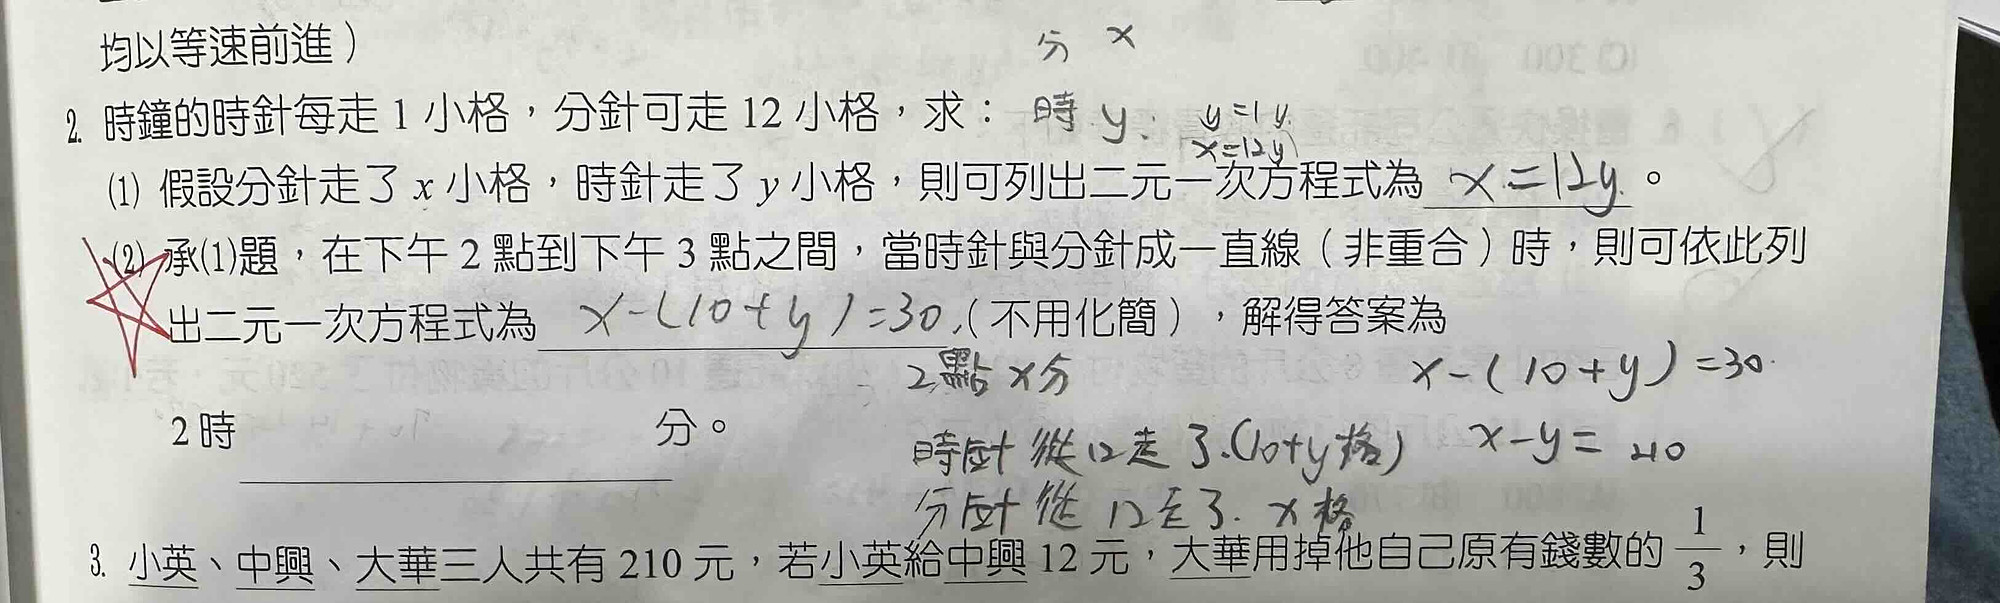 均以等速前進）
分 x
2. 時鐘的時針每走 1 小格，分針可走 12 小格，求：
時 y.
y=1y.
x=12y
(1) 假設分針走了 x 小格，時針走了 y 小格，則可列出二元一次方程式為 x=12y. 。
(2) 承(1)題，在下午 2 點到下午 3 點之間，當時針與分針成一直線（非重合）時，則可依此列
出二元一次方程式為 x-(10+y)=30.（不用化簡），解得答案為
2點x分
x-(10+y)=30.
2 時 分。
時針從12走了.(10+y格)
x-y=40
分針從12走了.x格
3. 小英、中興、大華三人共有 210 元，若小英給中興 12 元，大華用掉他自己原有錢數的 1/3，則